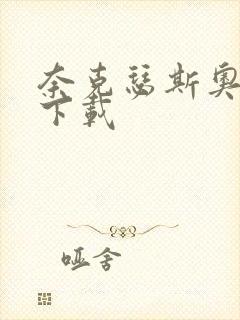 奈克瑟斯奥
下载
哑舍